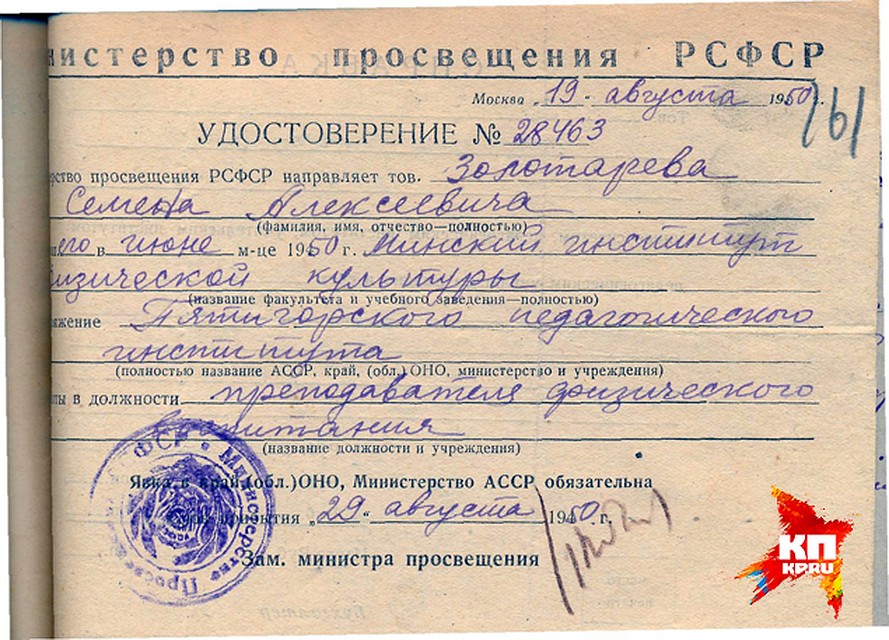 нистерство просвещения РСФСР
Москва „19" августа 1950 г.
161
УДОСТОВЕРЕНИЕ № 28463
рство просвещения РСФСР направляет тов. Золотарева
Семена Алексеевича
(фамилия, имя, отчество—полностью)
шего в июне м-це 1950 г. Минский институт
изической культуры
(название факультета и учебного заведения—полностью)
яжение Пятигорского педагогического
института
(полностью название АССР, край, (обл.) ОНО, министерство и учреждения)
ты в должности преподавателя физического
питания
(название должности и учреждения)
Явка в край.(обл.)ОНО, Министерство АССР обязательна
прибытия „29" августа 1950 г.
Зам. министра просвещения
РСФСР • Министерство Просве
КП
KP.RU